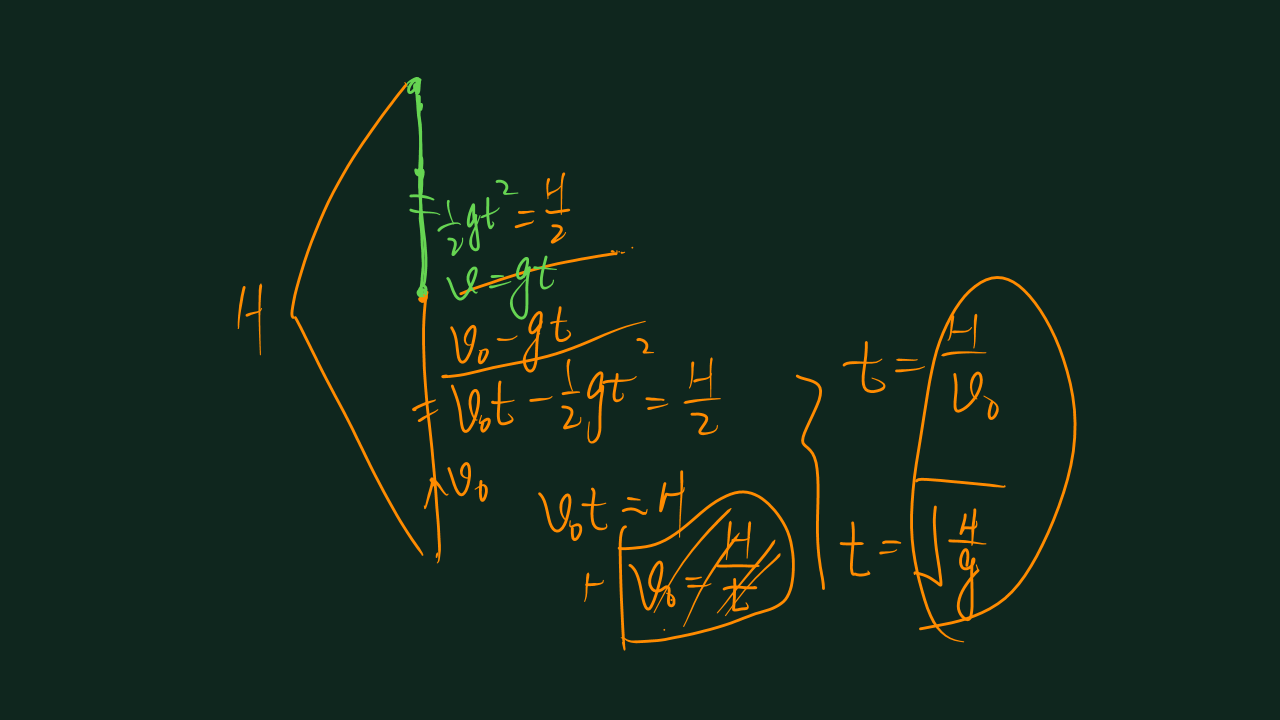 H
½gt² = H/2
v = gt
v₀ - gt
v₀t - ½gt² = H/2
v₀
v₀t = H
v₀ = H/t
t = H/v₀
t = √(H/g)